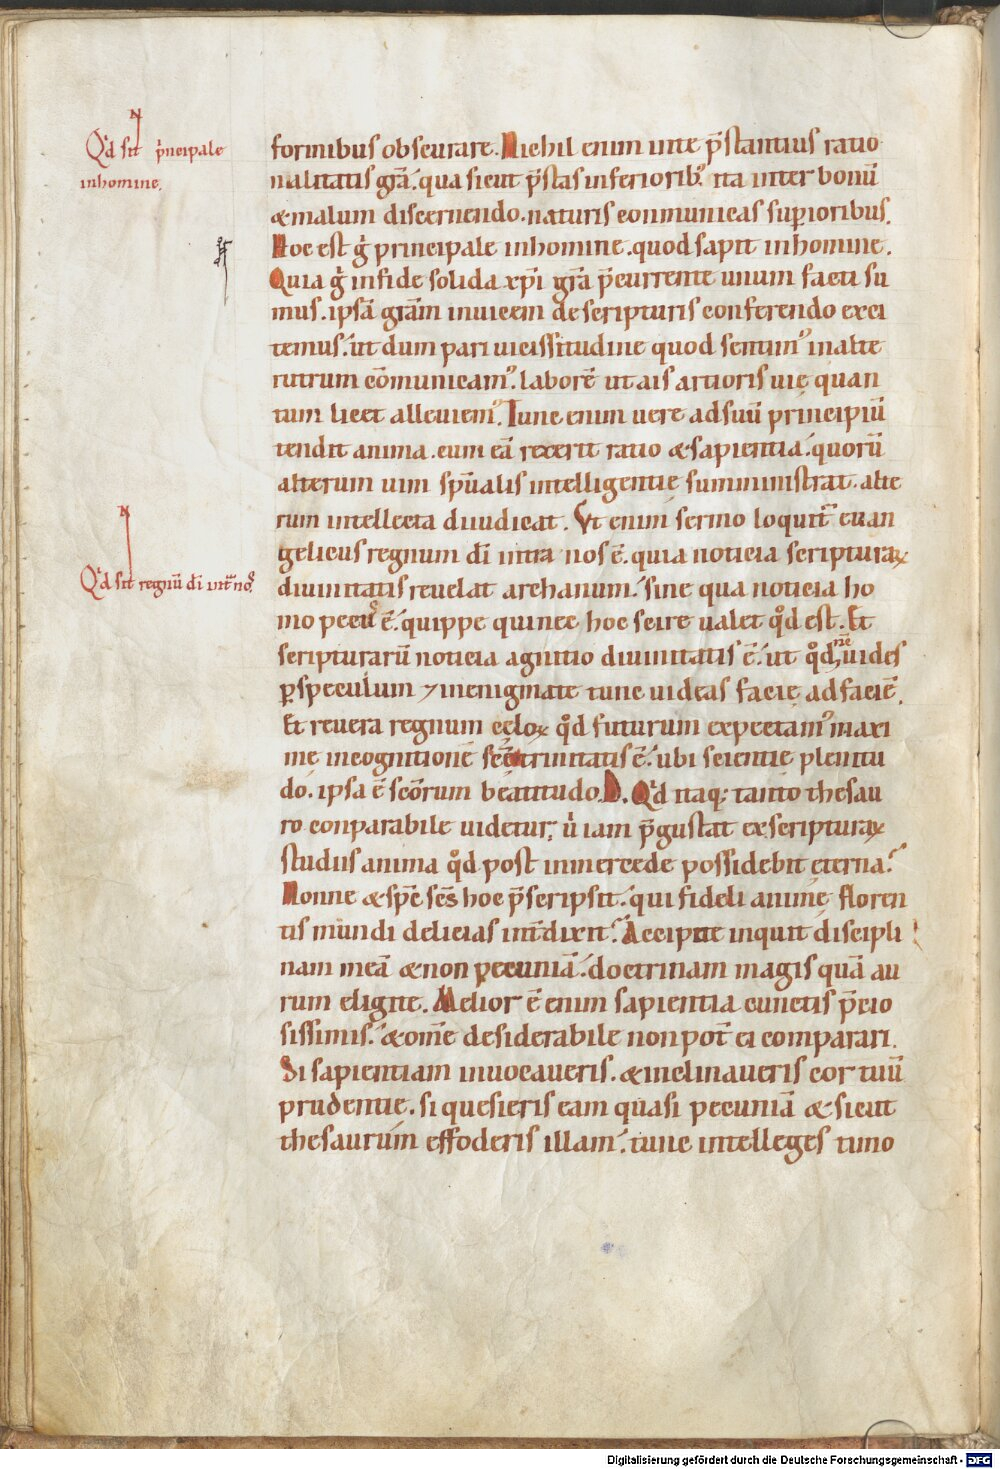 Qd̉ sit p̉ncipale
inhomine.
formibus obscurare. Nichil enim uite p̄stantius ratio
nalitatis gr̄a. qua sicut p̄stas inferiorib; ita inter bonū
&malum discernendo. naturis conmunicas superioribus.
Hoc est g̉ principale inhomine. quod sapit inhomine.
Quia g̉ infide solida xp̄i gr̄a p̄currente unum facti su
mus. ipsā grā̄m inuicem descripturis conferendo exci
temus. ut dum pari uicissitudine quod sentim᾿ inalte
rutrum cōmunicam᾿. laborē ut ais artioris uię quan
tum licet alleuiem᾿. Tunc enim uere adsuū principiū
tendit anima. cum eā rexerit ratio &sapientia. quorū
alterum uim sp̄ualis intelligentię sumministrat. alte
rum intellecta diiudicat. Vt enim sermo loquit̄ euan
gelicus regnum dī intra nos ē. quia noticia scripturaꝝ
Qd̉ sit regnū dī int̄ nos.
diuinitatis reuelat archanum. sine qua noticia ho
mo pecus ē. quippe quinec hoc scire ualet qd̉ est. Et
scripturarū noticia agnitio diuinitatis ē. ut qd̉ nc̄ uides
ꝑspeculum ⁊ inenigmate tunc uideas facię adfaciē.
Et reuera regnum cęloꝝ qd̉ futurum expectam᾿ maxi
mę incognitionē sc̄ę trinitatis ē. ubi scientię plenitu
do. ipsa ē scōrum beatitudo. D. Qd̉ itaq; tanto thesau
ro conparabile uidetur, ū iam p̄gustat exscripturaꝝ
studiis anima qd̉ post inmercede possidebit ęterna.
Nonne &sp̄c sc̄s hoc p̄scripsit. qui fideli animę floren
tis mundi delicias int̄dixit. Accipite inquit discipli
nam meā &non pecuniā. doctrinam magis quā au
rum eligite. Melior ē enim sapientia cunctis p̄cio
sissimis. &omē desiderabile non pot̄ ei comparari.
Si sapientiam inuocaueris. &inclinaueris cor tuū
prudentię. si quesieris eam quasi pecuniā &sicut
thesaurum effoderis illam. tunc intelleges timo
Digitalisierung gefördert durch die Deutsche Forschungsgemeinschaft - DFG